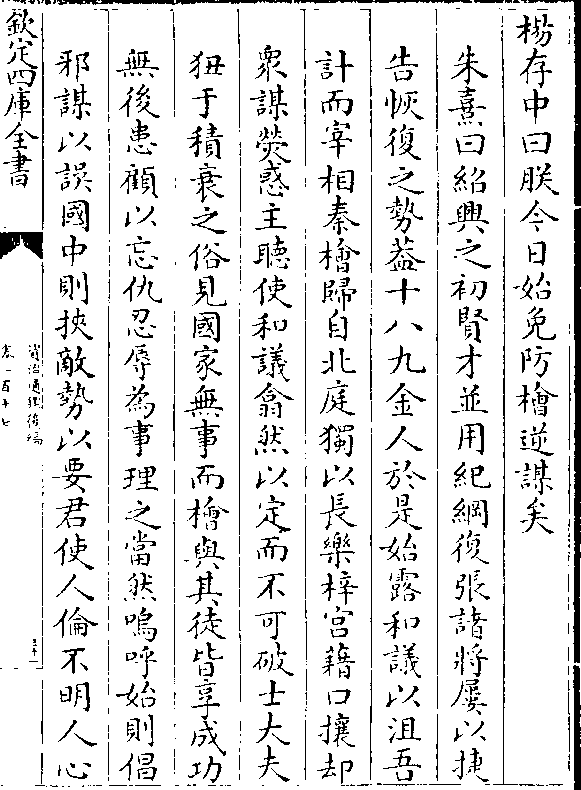 楊存中曰朕今日始免防檜逆謀矣
朱熹曰紹興之初賢才並用紀綱復張諸將屢以捷
告恢復之勢葢十八九金人於是始露和議以沮吾
計而宰相秦檜歸自北庭獨以長樂梓宫藉口攘却
衆謀熒惑主聽使和議翕然以定而不可破士大夫
狃于積衰之俗見國家無事而檜與其徒皆享成功
無後患顧以忘仇忍辱為事理之當然嗚呼始則倡
邪謀以誤國中則挾敵勢以要君使人倫不明人心
欽定四庫全書
資治通鑑後編
卷一百十七